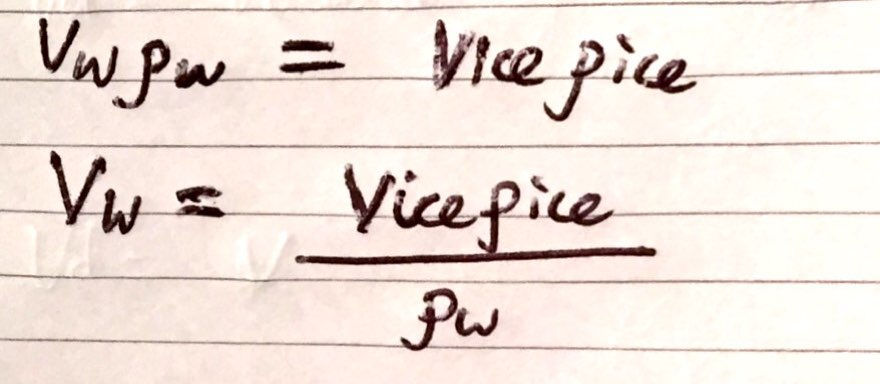 Vwρw = Viceρice
Vw = Viceρice
ρw